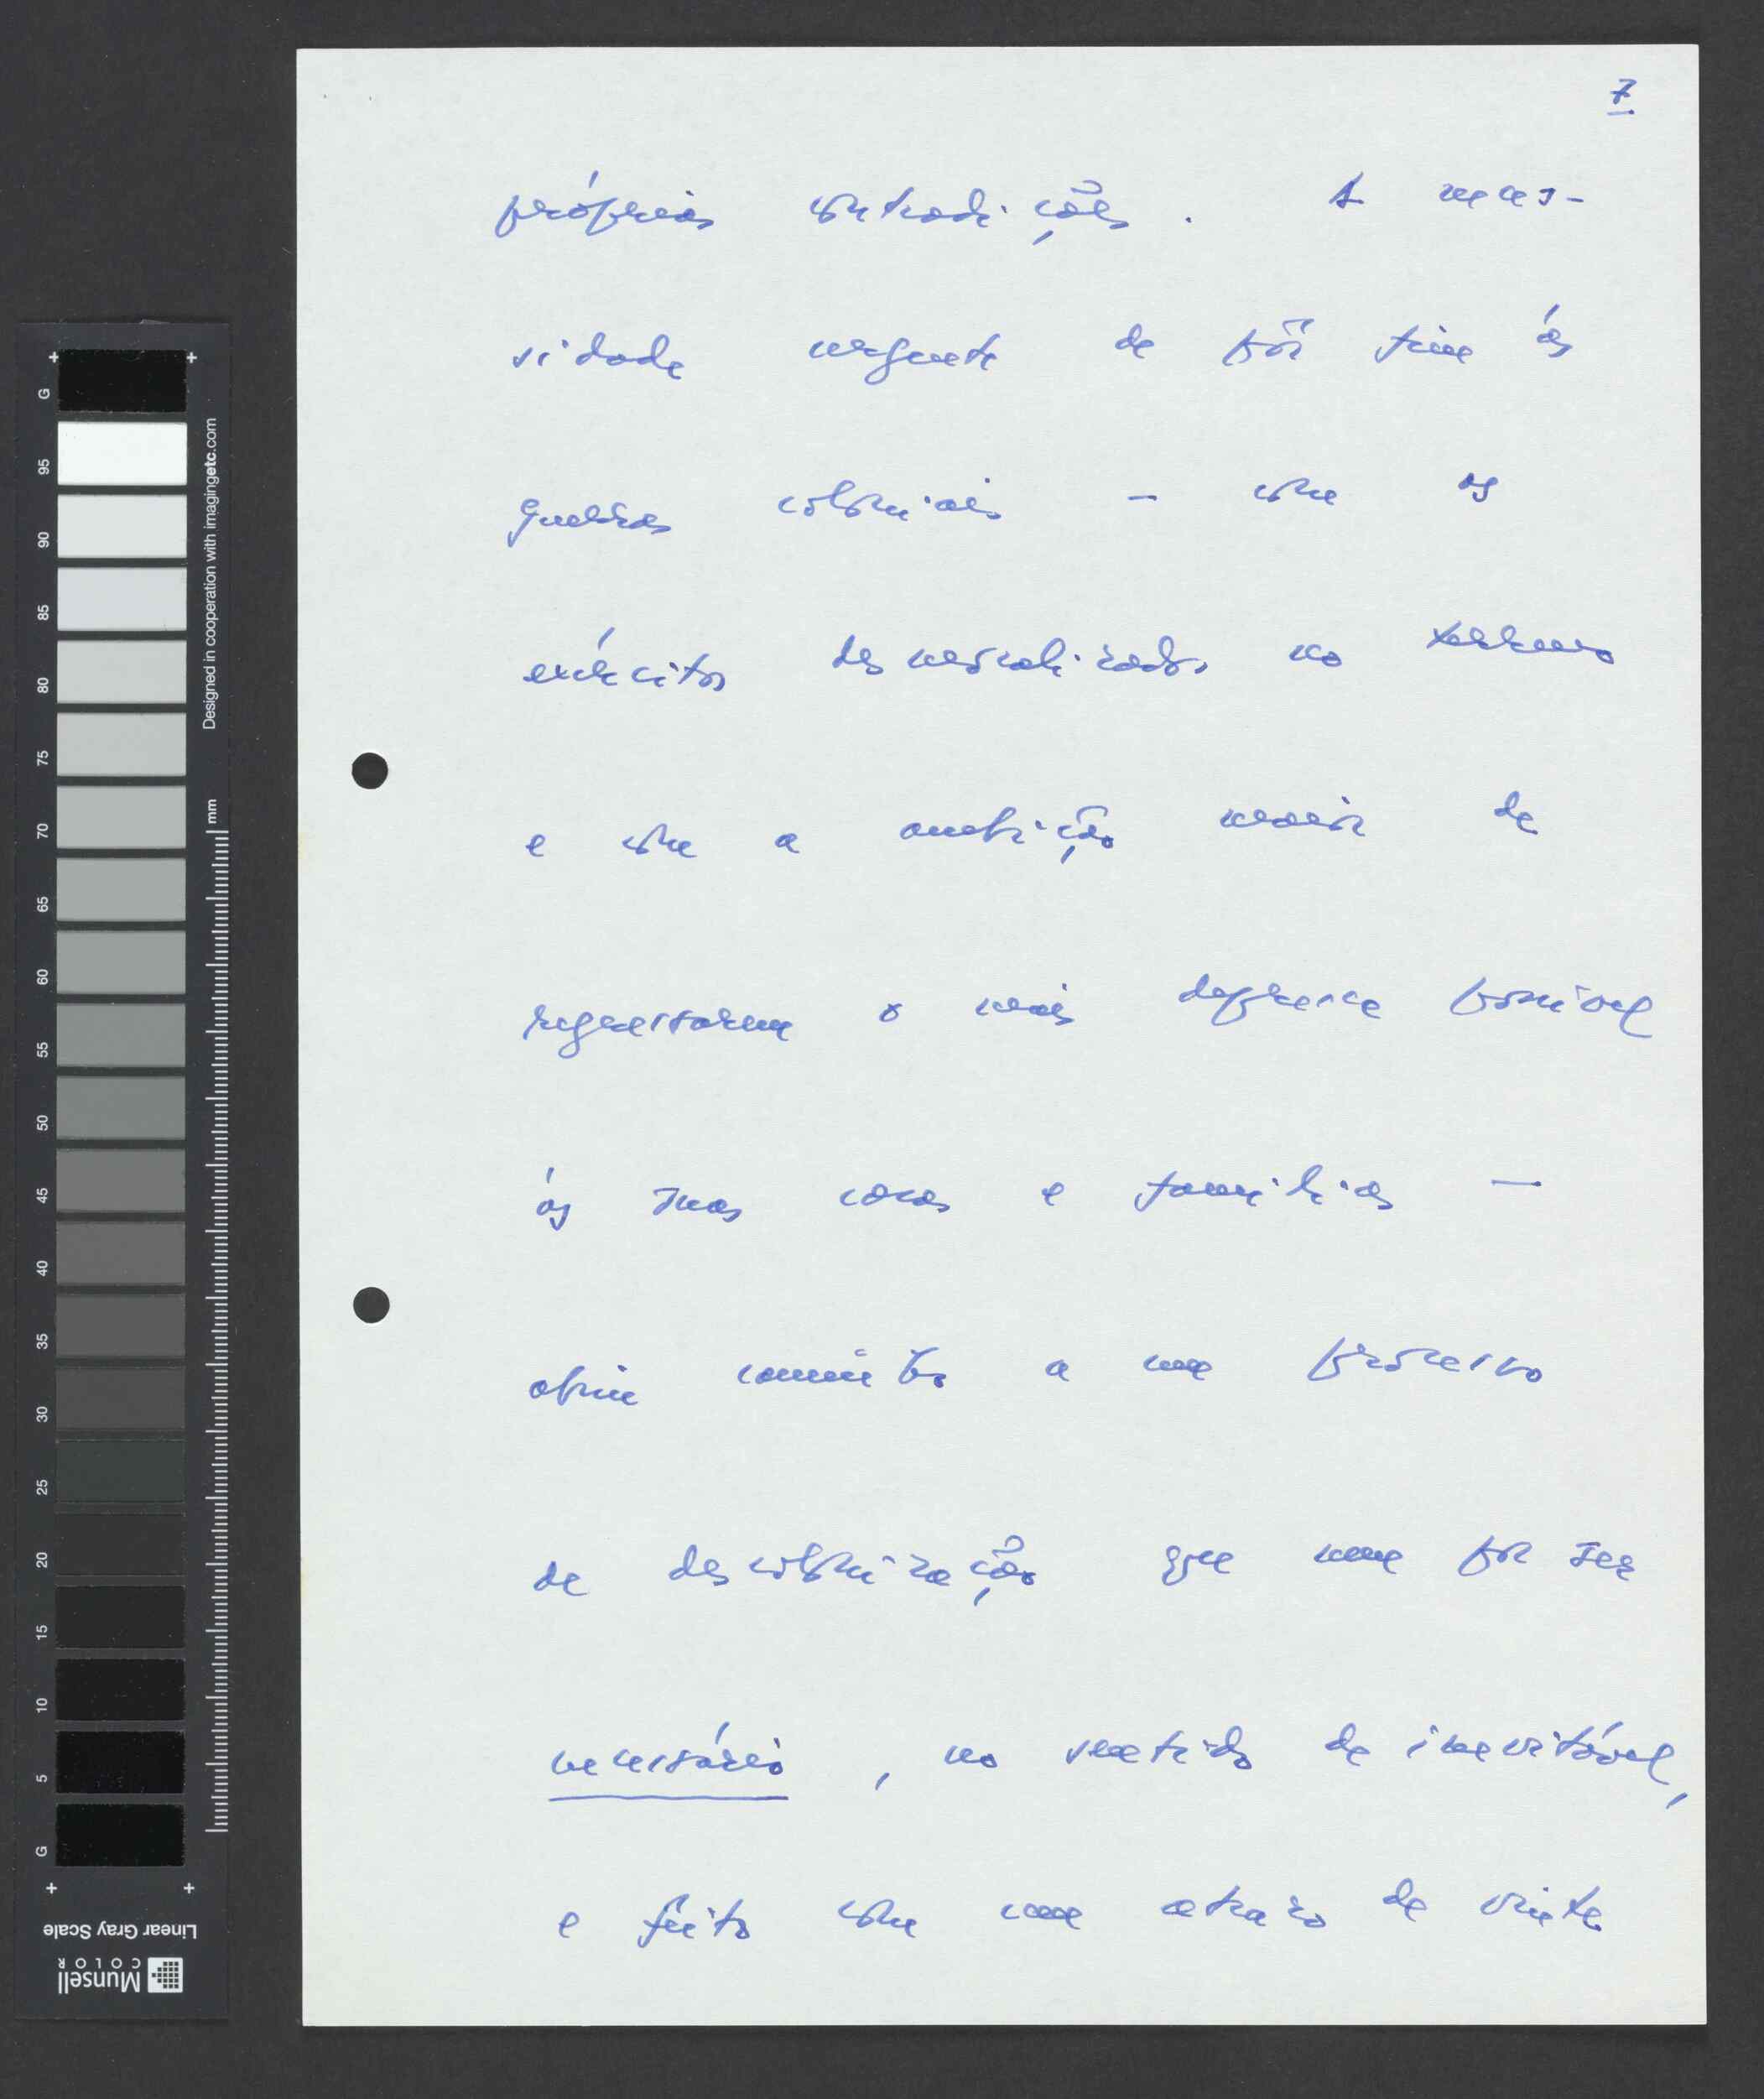 7
próprias contradições. A neces-
sidade urgente de pôr fim às
guerras coloniais – com os
exércitos desmoralizados no terreno
e com a ambição maior de
regressarem o mais depressa possível
às suas casas e famílias –
abriu caminho a um processo
de descolonização que teve por ser
necessário, no sentido de inevitável,
e feito com um atraso de vinte
G
95
90
85
80
75
70
65
60
55
50
45
40
35
30
25
20
15
10
5
G
Designed in cooperation with imagingetc.com
mm
Linear Gray Scale
Munsell
COLOR